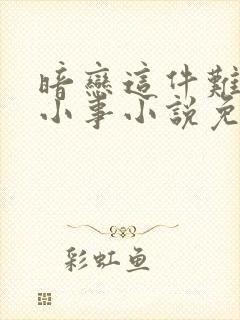 暗戀這件難
小事小說免
彩虹鱼